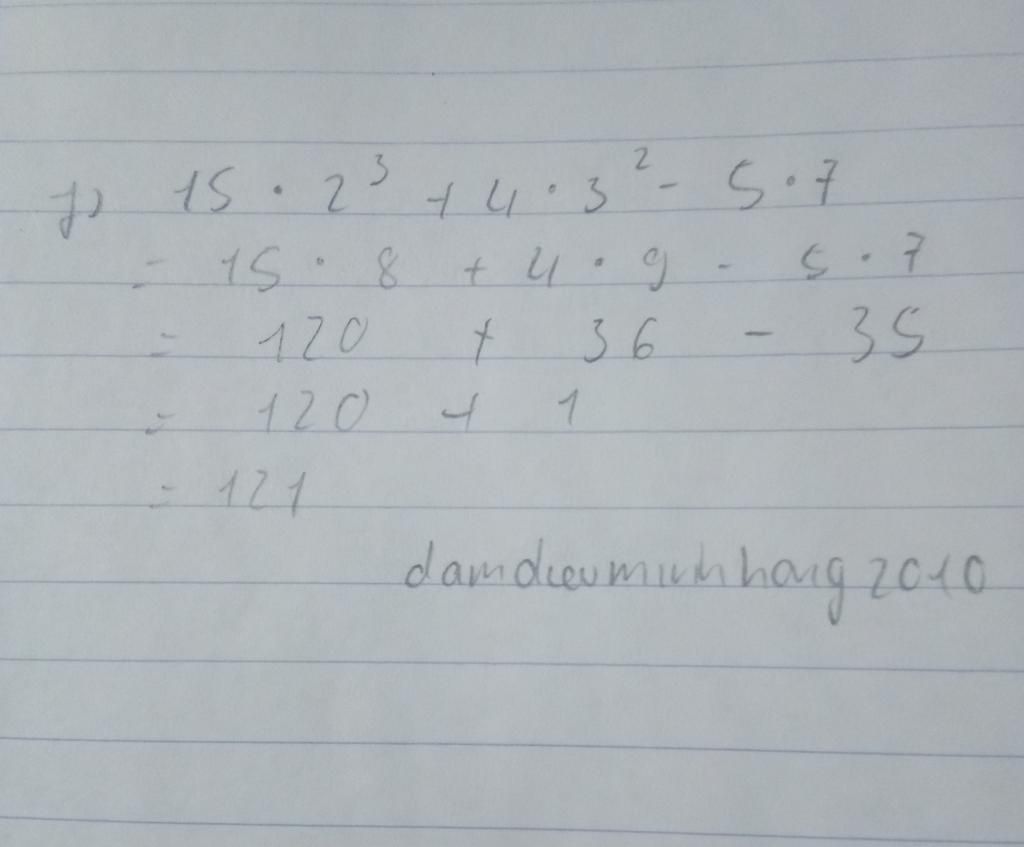 f) 15 · 2³ + 4 · 3² - 5 · 7
= 15 · 8 + 4 · 9 - 5 · 7
= 120 + 36 - 35
= 120 + 1
= 121
damdieuminhhang2010